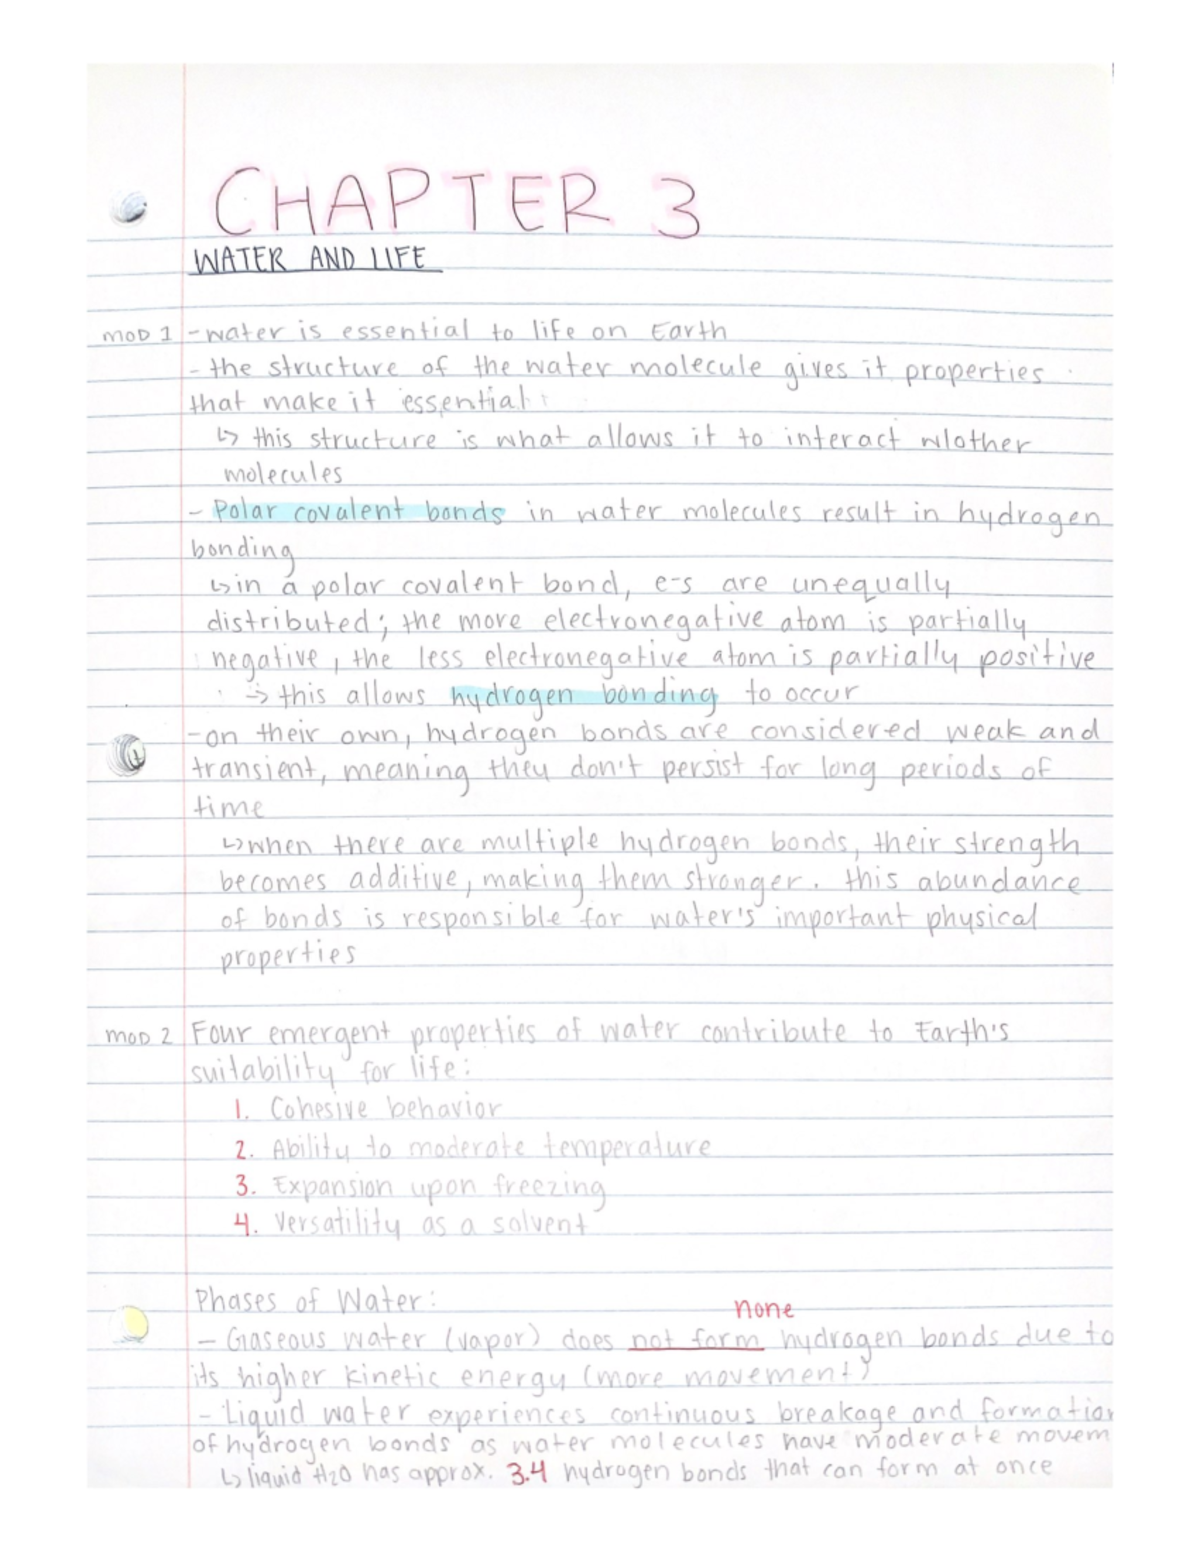 CHAPTER 3
WATER AND LIFE
MOD 1 - water is essential to life on Earth
- the structure of the water molecule gives it properties
that make it essential
↳ this structure is what allows it to interact w/other
molecules
- Polar covalent bonds in water molecules result in hydrogen
bonding
↳ in a polar covalent bond, e-s are unequally
distributed; the more electronegative atom is partially
negative, the less electronegative atom is partially positive
→ this allows hydrogen bonding to occur
- on their own, hydrogen bonds are considered weak and
transient, meaning they don't persist for long periods of
time
↳ when there are multiple hydrogen bonds, their strength
becomes additive, making them stronger. this abundance
of bonds is responsible for water's important physical
properties
MOD 2 Four emergent properties of water contribute to Earth's
suitability for life:
1. Cohesive behavior
2. Ability to moderate temperature
3. Expansion upon freezing
4. Versatility as a solvent
Phases of Water:
none
- Gaseous water (vapor) does not form hydrogen bonds due to
its higher kinetic energy (more movement)
- Liquid water experiences continuous breakage and formation
of hydrogen bonds as water molecules have moderate movem
↳ liquid H2O has approx. 3.4 hydrogen bonds that can form at once